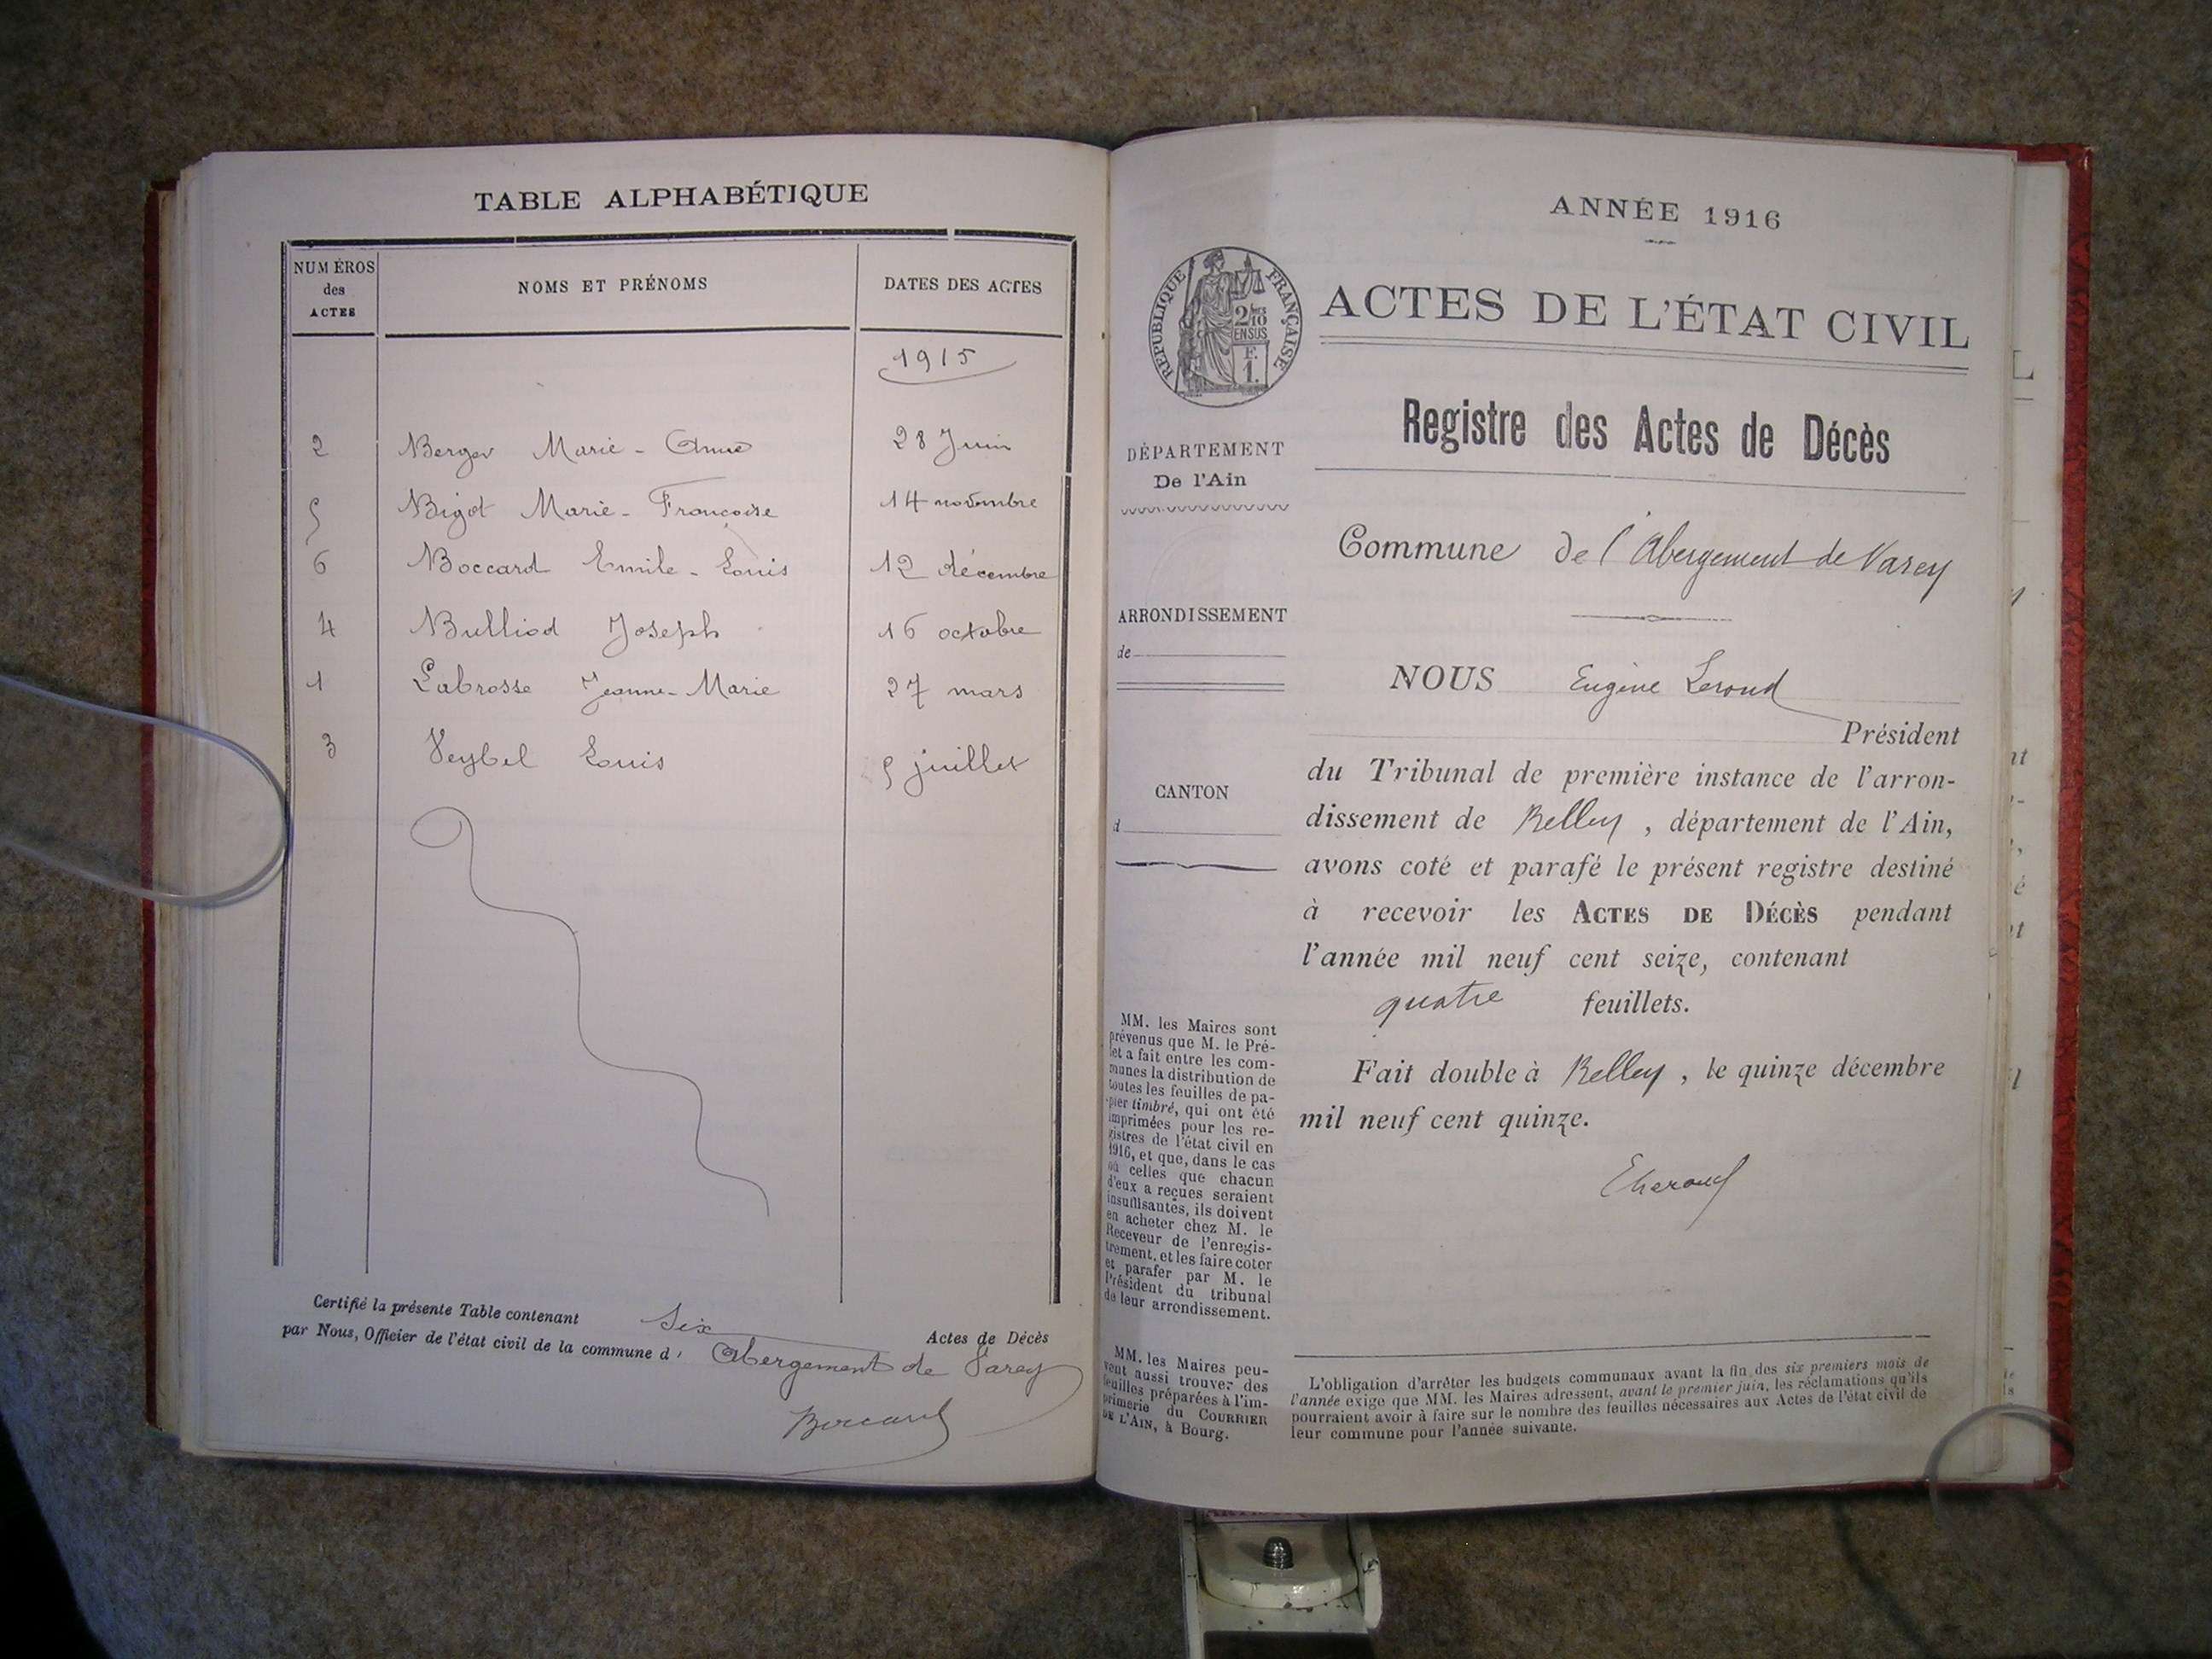 TABLE ALPHABÉTIQUE
NUMÉROS des ACTES
NOMS ET PRÉNOMS
DATES DES ACTES
1915
2 Berger Marie - Anne 28 Juin
5 Bigot Marie - Francoise 14 novembre
6 Boccard Emile - Louis 12 décembre
4 Bulliod Joseph 16 octobre
1 Labrosse Jeanne - Marie 27 mars
3 Louis 5 juillet
Certifié la présente Table contenant six Actes de Décès
par Nous, Officier de l'état civil de la commune d' Abergement de Varey
ANNÉE 1916
RÉPUBLIQUE FRANÇAISE
2/10
EN SUS
F.
1.
ACTES DE L'ÉTAT CIVIL
Registre des Actes de Décès
DÉPARTEMENT
De l'Ain
Commune de l'Abergement de Varey
ARRONDISSEMENT
de
NOUS Eugène Leroud
Président
du Tribunal de première instance de l'arron-
dissement de Belley, département de l'Ain,
avons coté et parafé le présent registre destiné
à recevoir les ACTES DE DÉCÈS pendant
l'année mil neuf cent seize, contenant
quatre feuillets.
Fait double à Belley, le quinze décembre
mil neuf cent quinze.
CANTON
d
MM. les Maires sont
prévenus que M. le Pré-
fet a fait entre les com-
munes la distribution de
toutes les feuilles de pa-
pier timbré, qui ont été
imprimées pour les re-
gistres de l'état civil en
1916, et que, dans le cas
où celles que chacun
d'eux a reçues seraient
insuffisantes, ils doivent
en acheter chez M. le
Receveur de l'enregis-
trement, et les faire coter
et parafer par M. le
Président du tribunal
de leur arrondissement.
MM. les Maires peu-
vent aussi trouver des
feuilles préparées à l'im-
primerie du COURRIER
DE L'AIN, à Bourg.
L'obligation d'arrêter les budgets communaux avant la fin des six premiers mois de
l'année exige que MM. les Maires adressent, avant le premier juin, les réclamations qu'ils
pourraient avoir à faire sur le nombre des feuilles nécessaires aux Actes de l'état civil de
leur commune pour l'année suivante.